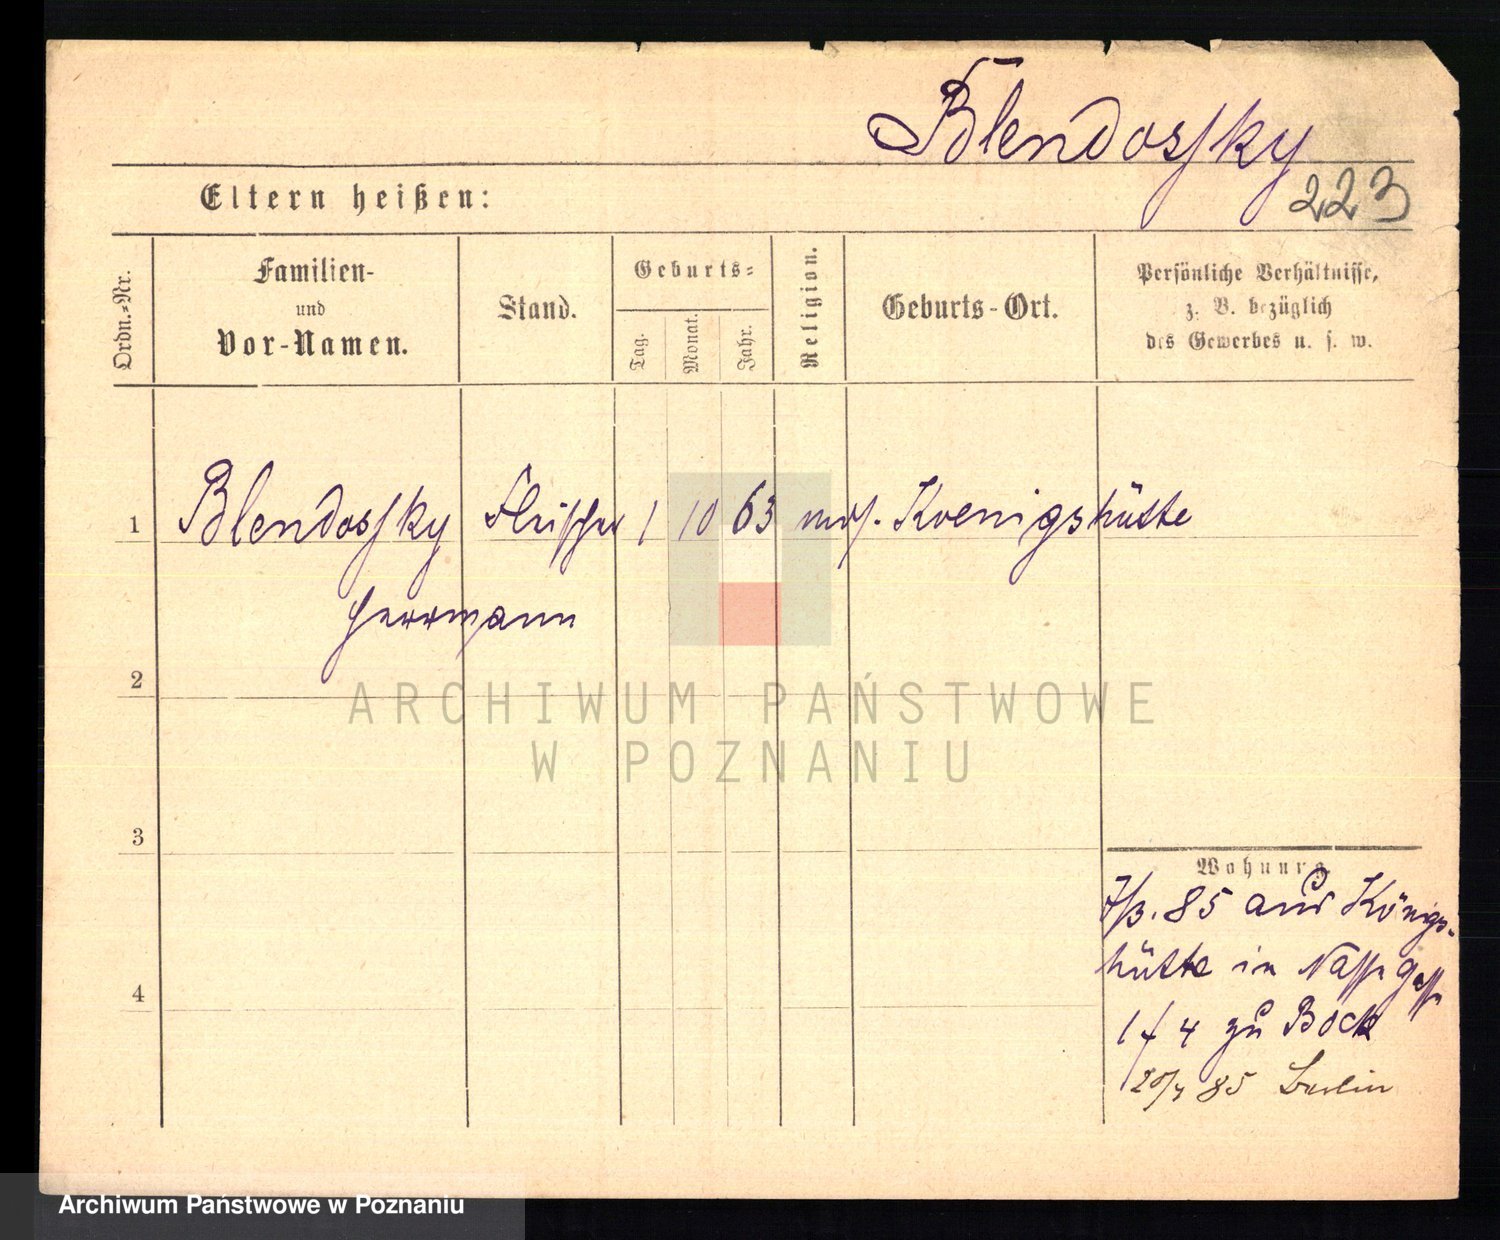 Blendowsky
223
Eltern heißen:
Ordn.-Nr.
Familien-
und
Vor-Namen.
Stand.
Geburts-
Tag.
Monat.
Jahr.
Religion.
Geburts-Ort.
Persönliche Verhältnisse,
z. B. bezüglich
des Gewerbes u. s. w.
1 Blendowsky Fleischer 1 10 63 mos. Koenigshütte
Herrmann
2
3
4
Wohnung.
7/3. 85 aus Königs-
hütte in Nasse gasse
1 f 4 zu Bock
85 Berlin
ARCHIWUM PAŃSTWOWE
W POZNANIU
Archiwum Państwowe w Poznaniu